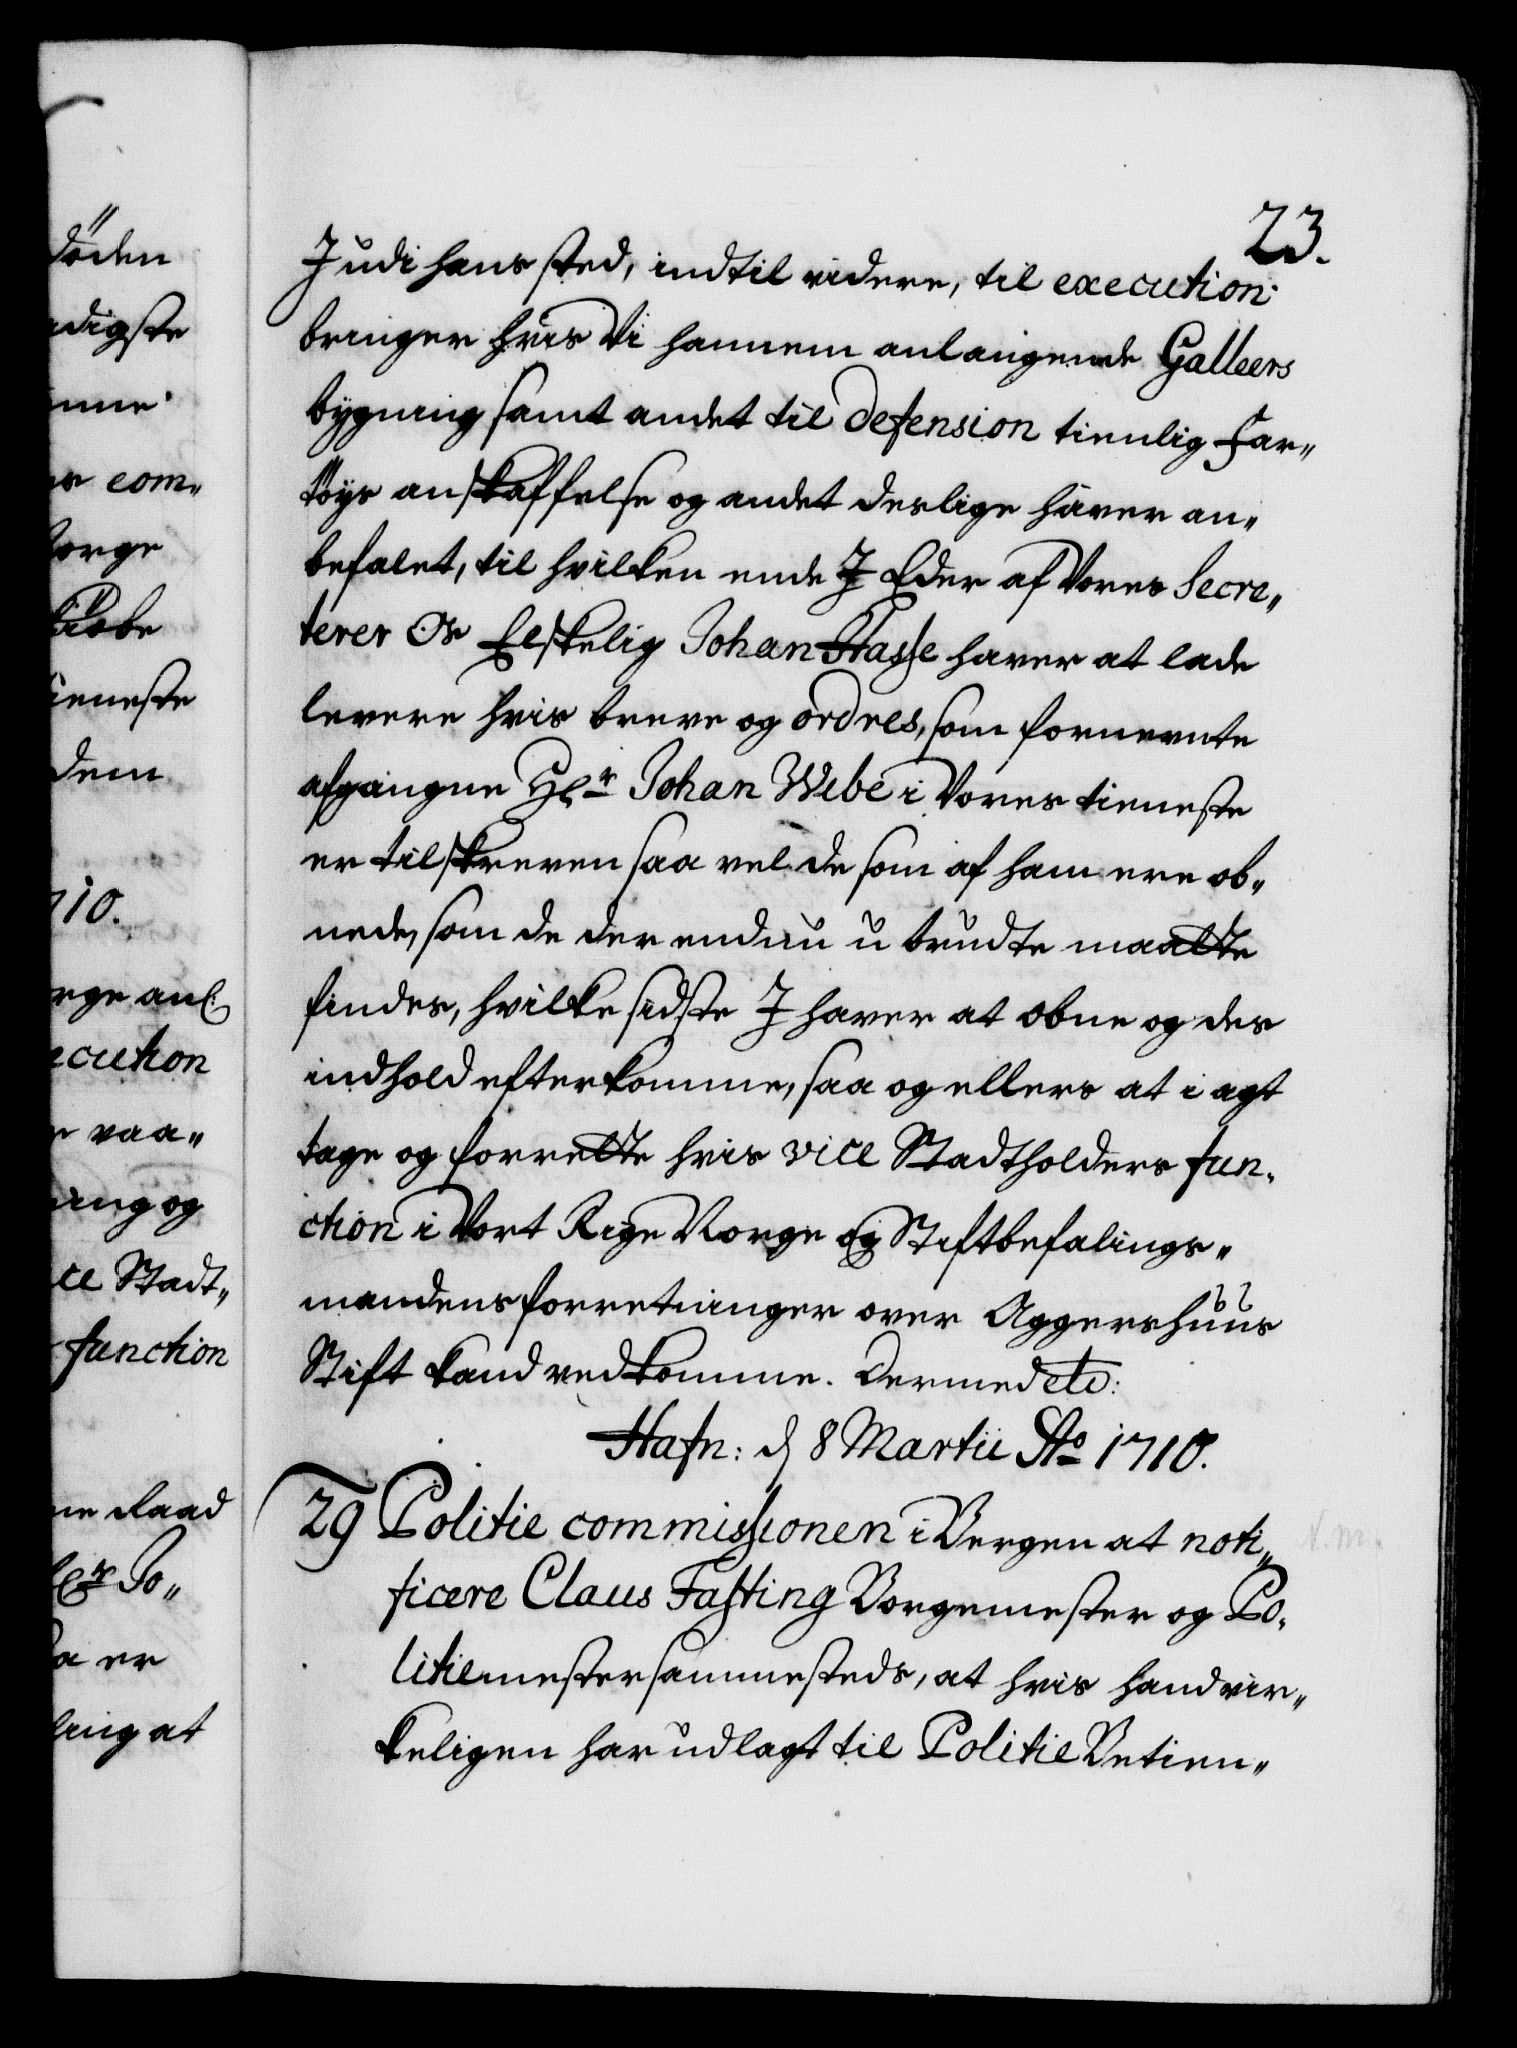 23.
J udi hans sted, indtil videre, til execution
bringer hvis Vi hannem anlangende Galleers
bygning samt andet til defension tienlig Far„
töys anskaffelse og andet deslige haver an„
befalet, til hvilken ende J Eder af Vores Secre„
terer Os Elskelig Johan Hasse haver at lade
levere hvis breve og ordres, som fornevnte
afgangne Hr Johan Wibe i Vores tieneste
er tilskreven saa vel de som af ham ere ob„
nede, som de der endnu u brudte maatte
findes, hvilke sidste J haver at obne og des
indhold efterkomme, saa og ellers at i agt
tage og forrette hvis vice Stadtholders fun„
ction i Vort Rige Norge og Stiftbefalings„
mandens forretninger over Aggershuus
Stift kand vedkomme. Dermed etc:
Hafn: d 8 Martii Ao 1710.
29 Politie commissionen i Bergen at noti„
ficere Claus Fasting Borgemester og Po„
litiemester sammesteds, at hvis hand vir„
keligen har udlagt til Politie Betien„
döden
digste
com„
orge
kiöbe
ieneste
dem
710.
rge anl.
ecution
vaa„
ning og
ce Stadt„
function
Raad
Hr Jo„
er
ling at